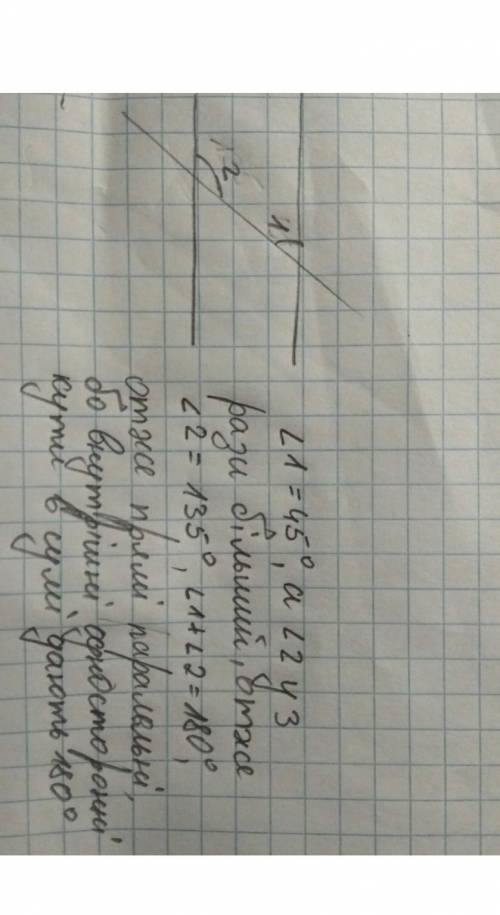 1
2
∠1 = 45°, а ∠2 у 3
рази більший, отже
∠2 = 135°, ∠1+∠2 = 180°,
отже прямі паралельні,
бо внутрішні односторонні
кути в сумі дають 180°